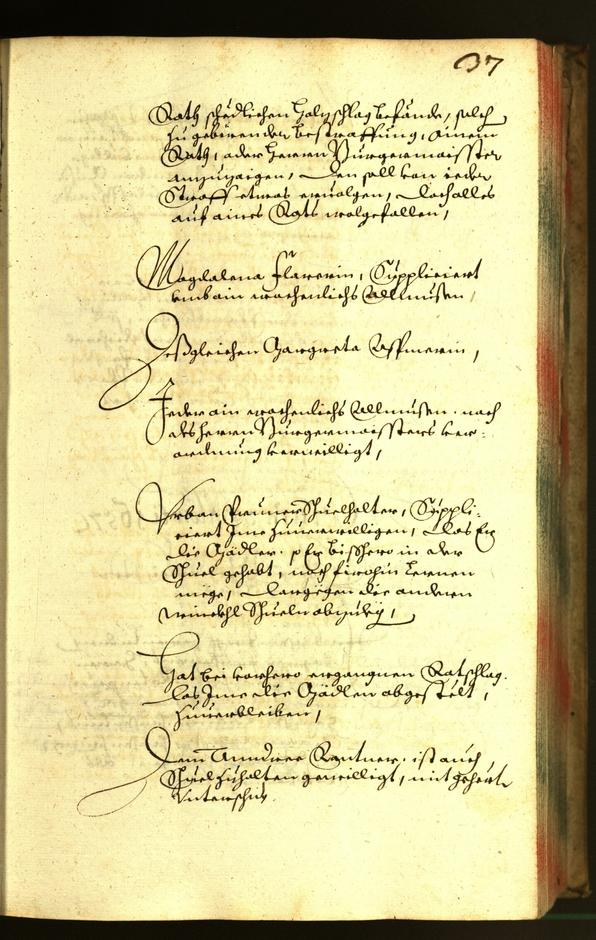 37
Rath schedlichen holzschlag befände, solch
zu gebürender bestraffung, ainem
Rath, oder herrn Burgermaisster
anzuzaigen, den soll von ieder
Straff etwas ervolgen, doch alles
auf aines Rats wolgefallen,
Magdalena Flarerin, Suppliciert
umb ain wochenlichs Allmusen,
Deßgleichen Margreta
Jeder ain wochenlichs Allmusen nach
des herrn Burgermaissters ver=
ordnung verwilligt,
Urban Pruner Schuelhalter, Suppli=
ciert Ime zuverwilligen, das Er
die Mädlen so Er bisshero in der
Schuel gehabt, noch firohin lernen
möge, dargegen die anderen
winckhl Schueln
Hat bei vorhero ergangnen Ratschlag
das Ime die Mädlen abgestelt,
zuverbleiben,
Dem Anndree Rantner ist auch
Schuel zuhalten gewilligt, mit
Unterschid